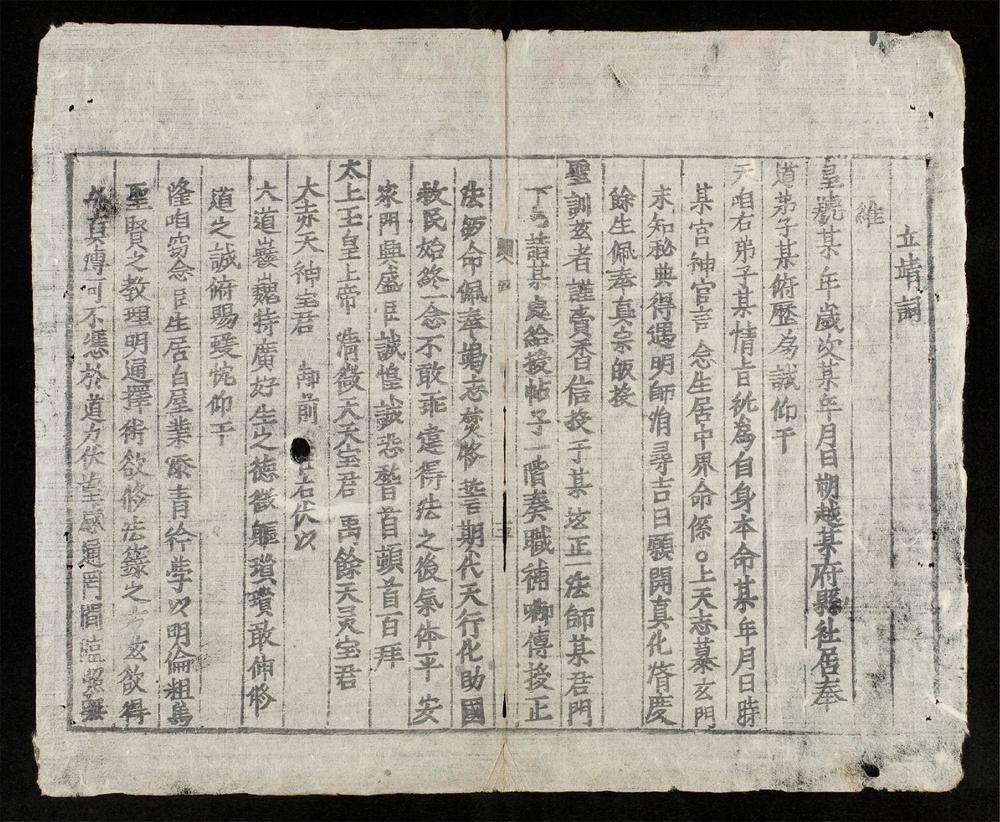 立靖詞
維
皇號某年歲次某年月日朔越某府縣社居奉
道弟子某俯歷為誠仰干
天咱右弟子某情旨祝為自身本命某年月日時
某宮神官言念生居中界命係○上天志慕玄門
未知秘典得遇明師涓尋吉日願開真化脩慶
餘生佩奉真宗皈投
聖訓玆者謹賫香信投于某坛正一法師某君門
下 請某處給授帖子一階奏職補 傳授正
法 命佩奉竭志焚修誓期代天行化助國
救民始終一念不敢乖違得法之後氣体平安
家門興盛臣誠惶誠恐稽首頓首百拜
太上玉皇上帝 清微天天宝君 禹餘天灵宝君
大赤天神宝君 御前 右伏以
大道巖巍特廣好生之德微軀瑣瓆敢伸修
道之誠俯賜 悅仰干
隆咱窃念臣生居白屋業添青衿學以明倫粗篤
聖賢之教理明通擇術欲修法籙之方玆欲得
真傳可不憑於道力伏望感通罔間臨照